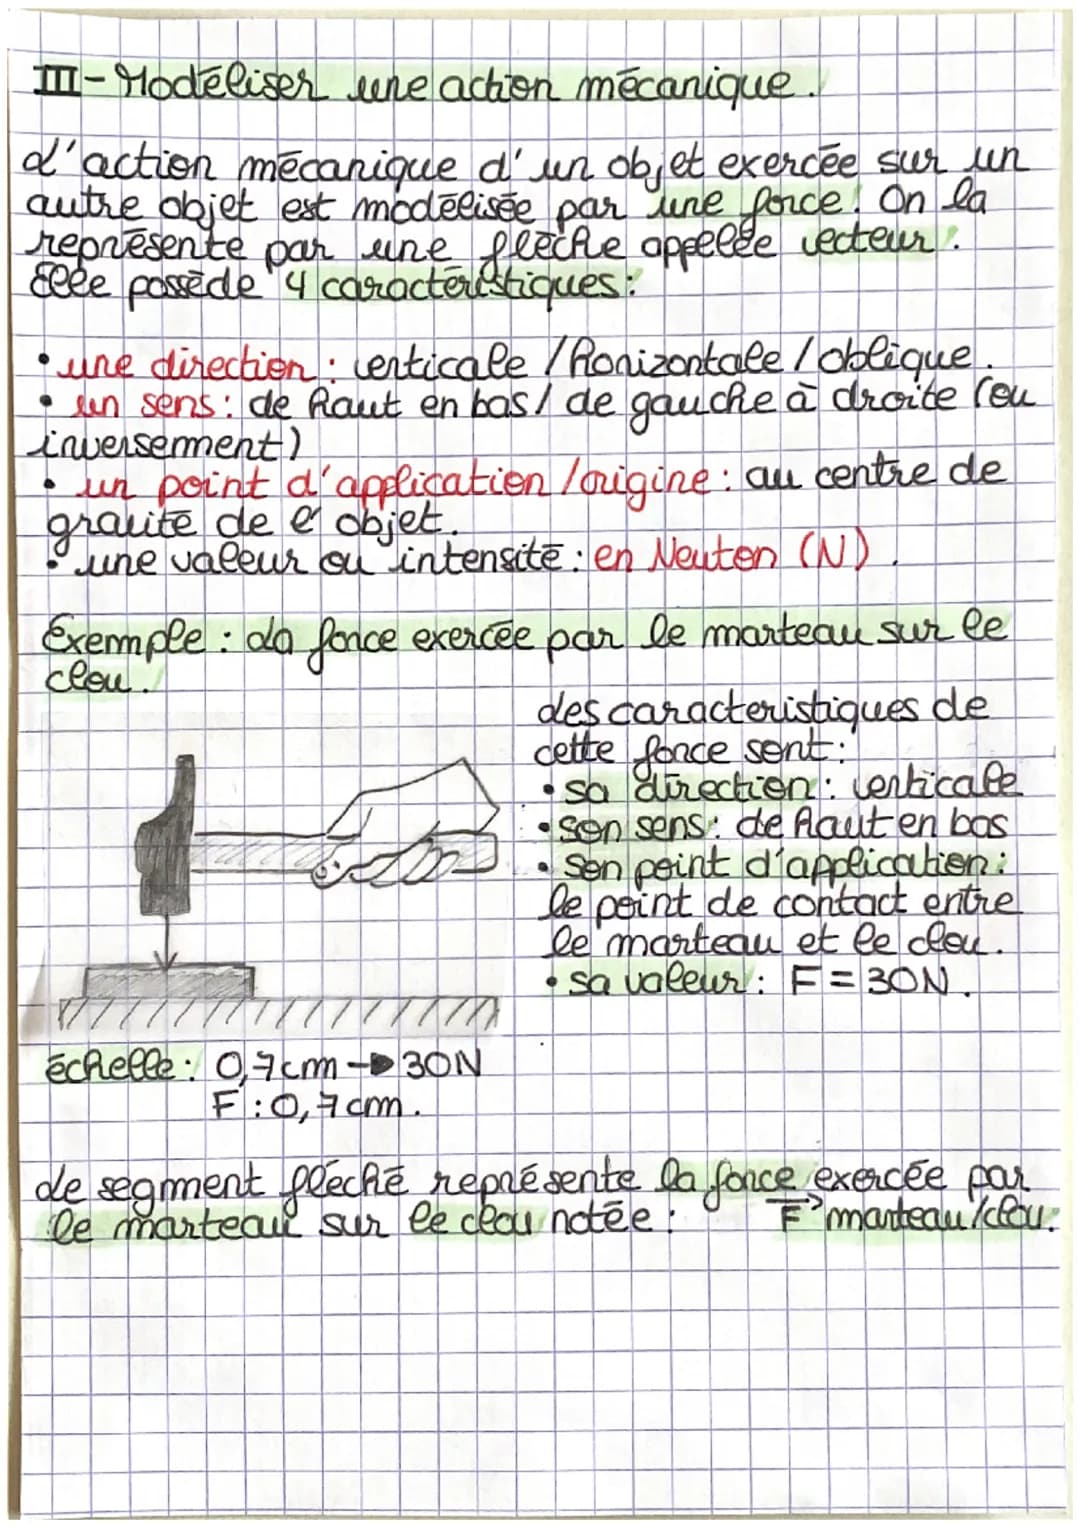 III- Modéliser une action mécanique.
L'action mécanique d'un objet exercée sur un
autre objet est modélisée par une force. On la
représente par une flèche appellée vecteur.
Elle possède 4 caractéristiques:
• une direction : verticale / Horizontale / oblique.
• un sens: de haut en bas / de gauche à droite (ou
inversement)
• un point d'application / origine : au centre de
gravité de l'objet.
• une valeur ou intensité : en Newton (N).
Exemple : La force exercée par le marteau sur le
clou.
Les caracteristiques de
cette force sont :
• sa direction : verticale
• son sens : de haut en bas
• son point d'application :
le point de contact entre
le marteau et le clou.
• sa valeur : F = 30N.
échelle : 0,7cm → 30N
F : 0,7 cm.
Le segment fléché représente la force exercée par
le marteau sur le clou notée : F→ marteau/clou.